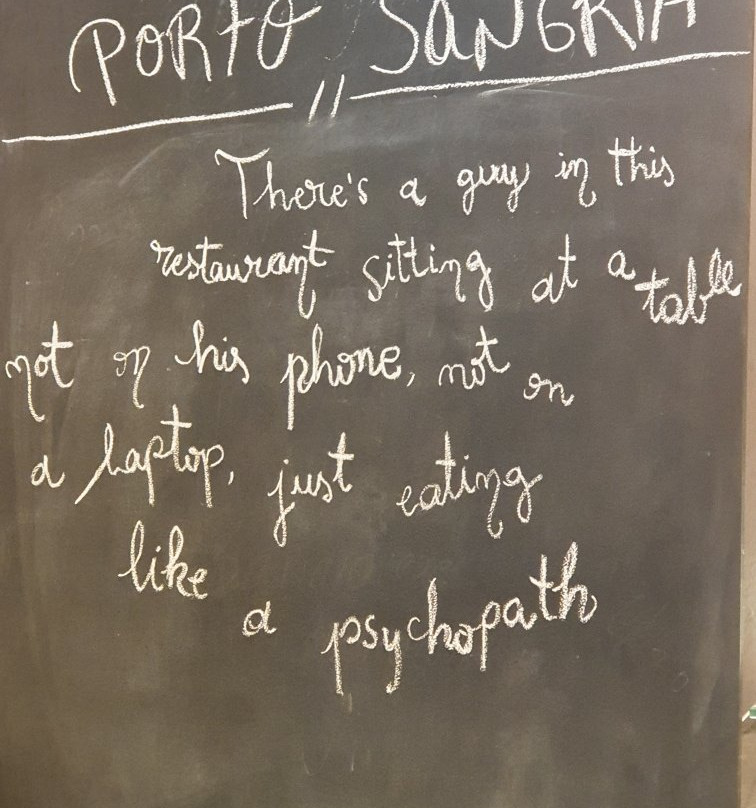 PORTO SANGRIA
There's a guy in this
restaurant sitting at a table
not on his phone, not on
a laptop, just eating
like
a psychopath